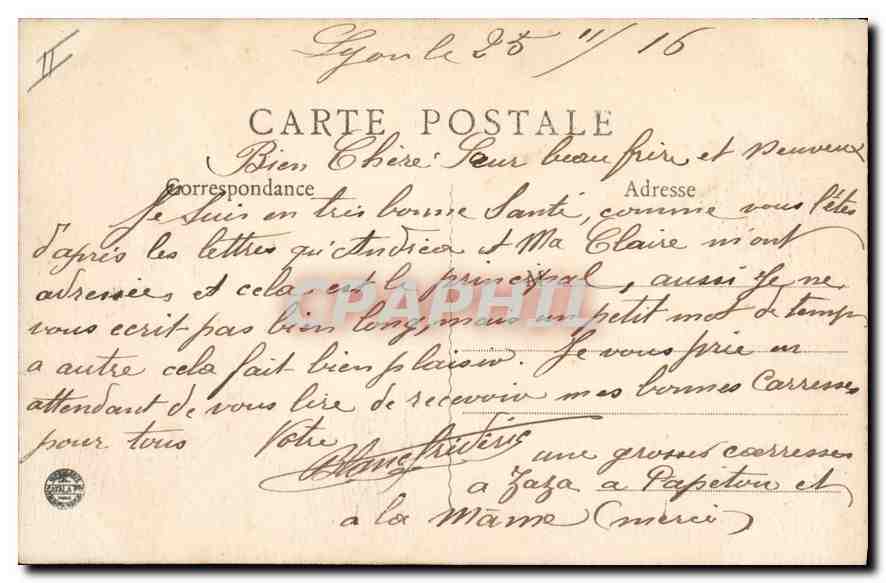 II
Lyon le 25 11/16
CARTE POSTALE
Bien Chère Sœur beau frère et Neuveux
Correspondance
Adresse
Je suis en très bonne Santé, comme vous l'êtes
d'après les lettres qu'Andréa et Ma Claire m'ont
adressées et cela est le principal, aussi Je ne
vous ecrit pas bien long, mais un petit mot de temp
a autre cela fait bien plaisir. Je vous prie en
attendant de vous lire de recevoir mes bonnes Carresses
pour tous Votre
Blanc Frédéric
une grosses caresses
a Zaza a Papeton et
a la Mame (merci)
CPAPHIL